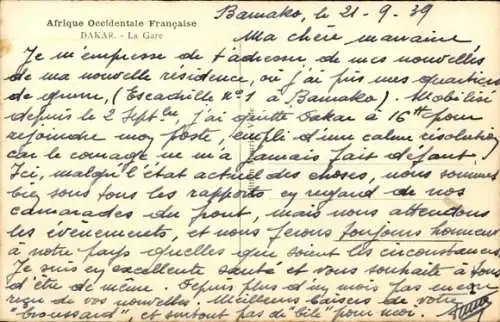 Afrique Occidentale Française
DAKAR. - La Gare
Bamako, le 21-9-39
Ma chère marraine
Je m'empresse de t'adresser, de mes nouvelles
de ma nouvelle résidence, où j'ai pris mes quartiers
de guerre, (Escadrille n° 1 à Bamako). Mobilisé
depuis le 2 Septbre, j'ai quitté Dakar à 16 pour
rejoindre mon poste, empli d'une calme résolution
car le courage ne m'a jamais fait défaut!
Ici, malgré l'état actuel des choses, nous sommes
bien sous tous les rapports en regard de nos
camarades du front, mais nous attendons
les évènements, et nous ferons toujours honneur
à notre pays quelles que soient les circonstances.
Je suis en excellente santé et vous souhaite à tous
d'être de même. Depuis plus d'un mois pas encore
reçu de vos nouvelles. Meilleurs baisers de votre
"broussard", et surtout pas de "bile" pour moi.